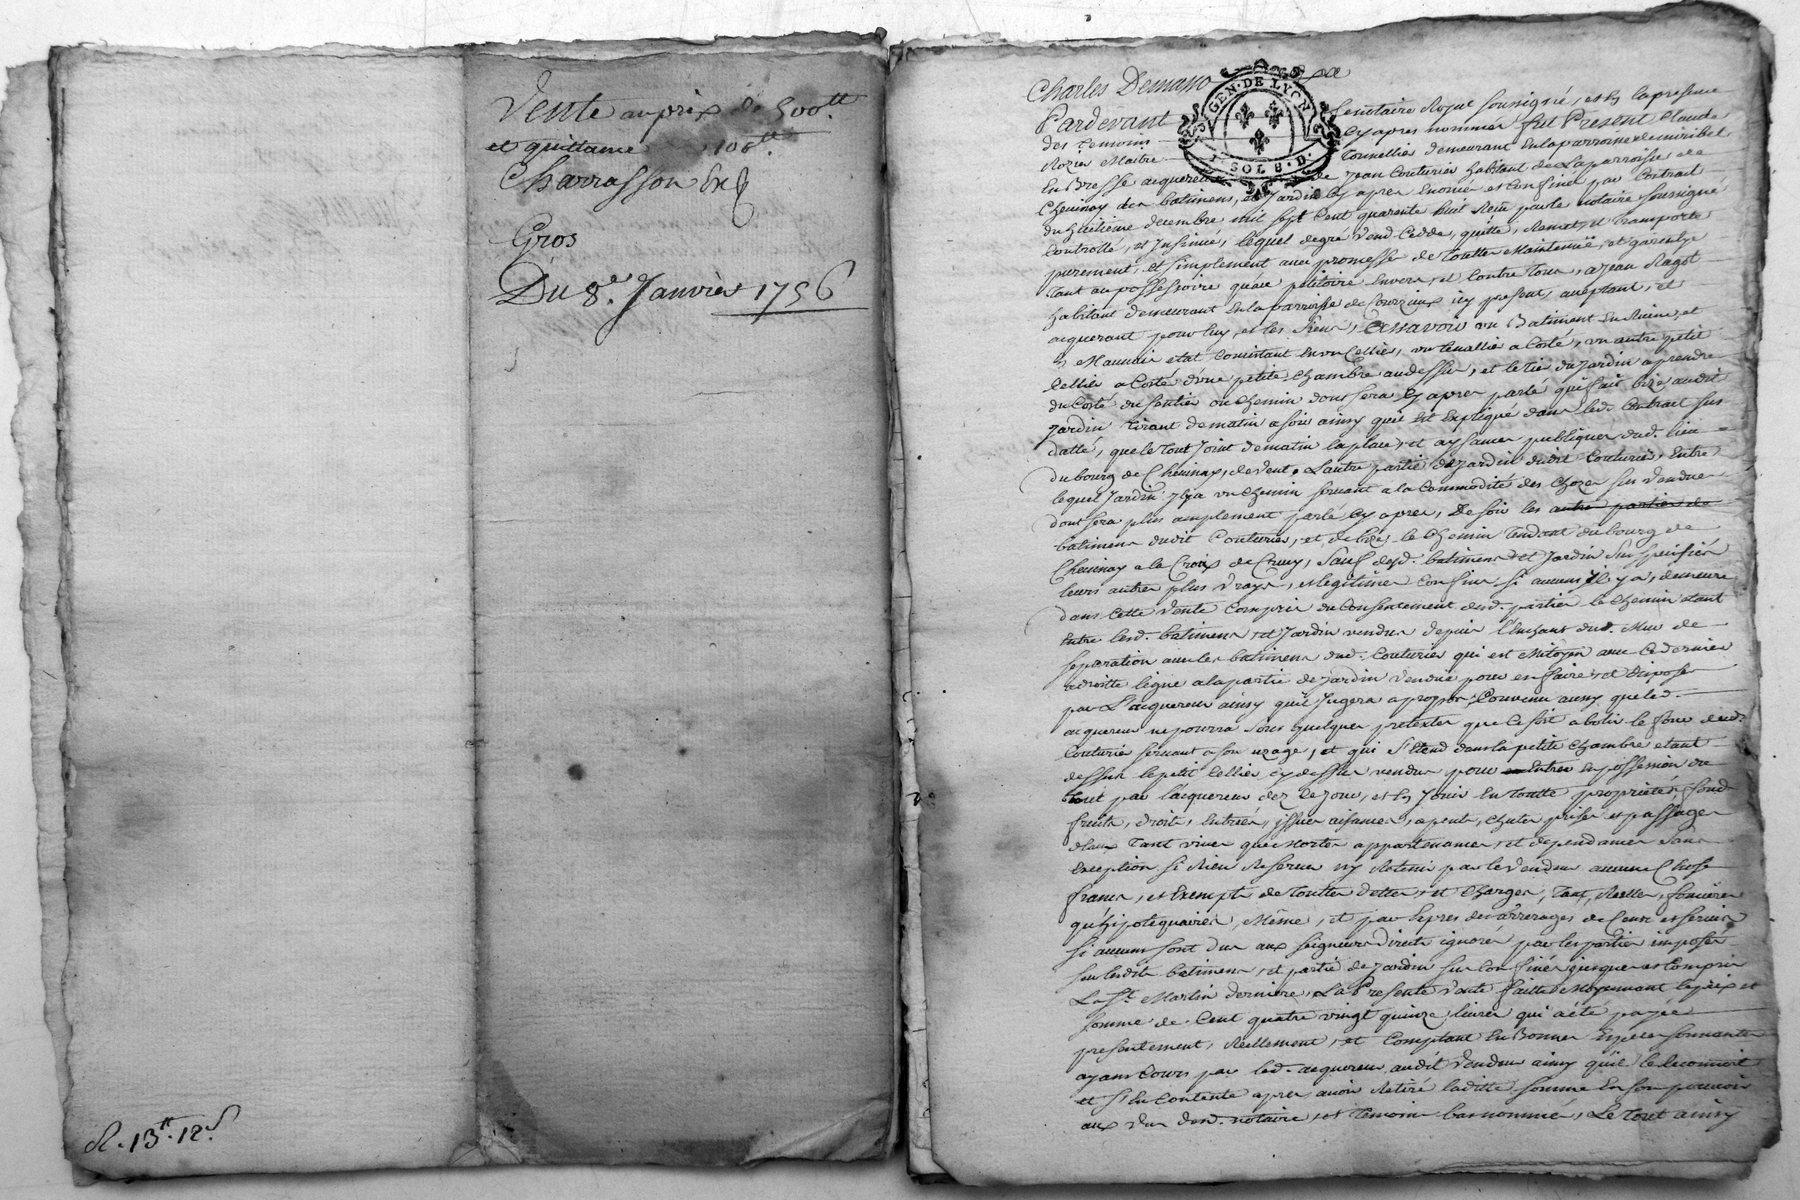 Vente au prix de 500tt
et quittance 100tt
Charrasson
Gros
Du 8e Janvier 1756
R. 13tt. 12s
Charles Demaso
GEN. DE LYON
SOLS. D.
Pardevant Le notaire Royal soussigné, et En la presence
des temoins Cy apres nommés fut Present Claude
Rozier Maitre Tonnellier demeurant En la parroisse de miribel
En Bresse acquereur de Jean Couturier habitant de La parroisse de
Chevinay des batimens, et Jardin Cy apres Enoncé et Confiné par Contrait
du huitième decembre mil sept Cent quarente huit Reçu par le notaire soussigné
Controllé, et Insinué, lequel de gré vend Cedde, quitte, Remet, et Transporte
purement, et simplement avec promesse de Toutte Maintenüe, et garentye
Tant au possessoire qu'au petitoire Envers, et Contre Tous, a Jean Ragot
habitant demeurant En la parroisse de Courzieux icy present, aceptant, et
acquerant pour luy, et les siens, Assavoir un Batiment En Ruine, et
En Mauvais etat Consistant En un Cellier, un tenallier a Costé, un autre petit
Cellier a Costé d'une petite Chambre au dessus, et le tier du Jardin a prendre
du Costé du sentier ou Chemin dont sera Cy apres parlé qui fait bize audit
Jardin Tirant de matin a soir ainsy qu'il Est Expliqué dans led. Contrait sus
datté, que le Tout Joint de matin la place, et aysances publiques dud. lieu
du bourg de Chevinay, de vent, L'autre partie du Jardin dudit Couturier, Entre
lequel Jardin il y a un Chemin servant a la Commodité des Choses sus vendues
dont sera plus amplement parlé Cy apres, De soir les autre parties de
batimens dudit Couturier, et de bize le Chemin Tendant du bourg de
Chevinay a la Croix de Cruzy, Sauf desd. batimens et Jardin sus specifiés
leurs autres plus vrays, et legitimes Confins si aucuns Il y a, demeure
dans Cette Vente Compris du Consentement desd. parties le Chemin etant
Entre lesd. batimens, et Jardin vendus depuis l'Enchant dud. Mur de
separation avec les batimens dud. Couturier qui est Mitoyen avec Ce dernier
a droitte ligne a la partie de Jardin vendue pour en faire, et disposer
par L'acquereur ainsy qu'il Jugera a propos, Convenu ainsy que led.
acquereur ne pourra sous quelques pretextes que Ce soit abolir le four dud.
Couturier servant a son uzage, et qui s'etend dans la petite Chambre etant
dessus le petit Cellier cy dessus vendu pour Entrer En possession du
Tout par l'acquereur dez Ce Jour, et En Jouir En toutte proprietés, fond
fruits, droits, Entrées, issues aisances, apents, Chutes prises et passages
d'eaux Tant vives que mortes appartenances et dependances sans
Exception si Rien Reserver ny Retenir par le Vendeur aucune Chose
francs, et Exempts de Touttes dettes, et Charges, Tant Réelles, foncieres
qu'hipotequaires, Même, et par Exprès des arrerages de Cens et servis
si aucuns sont dus aux seigneurs directs ignorés par les parties imposés
sur lesdits batimens, et partie de Jardin sus Confinés jusques et Compris
La St. Martin derniere, La Presente Vente faitte Moyennant le prix et
somme de Cent quatre vingt quinze livres qui a été payée
presentement, Réellement, et Comptant En Bonnes Especes sonnantes
ayans Cours par led. acquereur audit Vendeur ainsy qu'il le Reconnoit
et s'en Contente apres avoir Retiré laditte somme En son pouvoir
aux vus dud. notaire, et temoins bas nommés, Le Tout ainsy